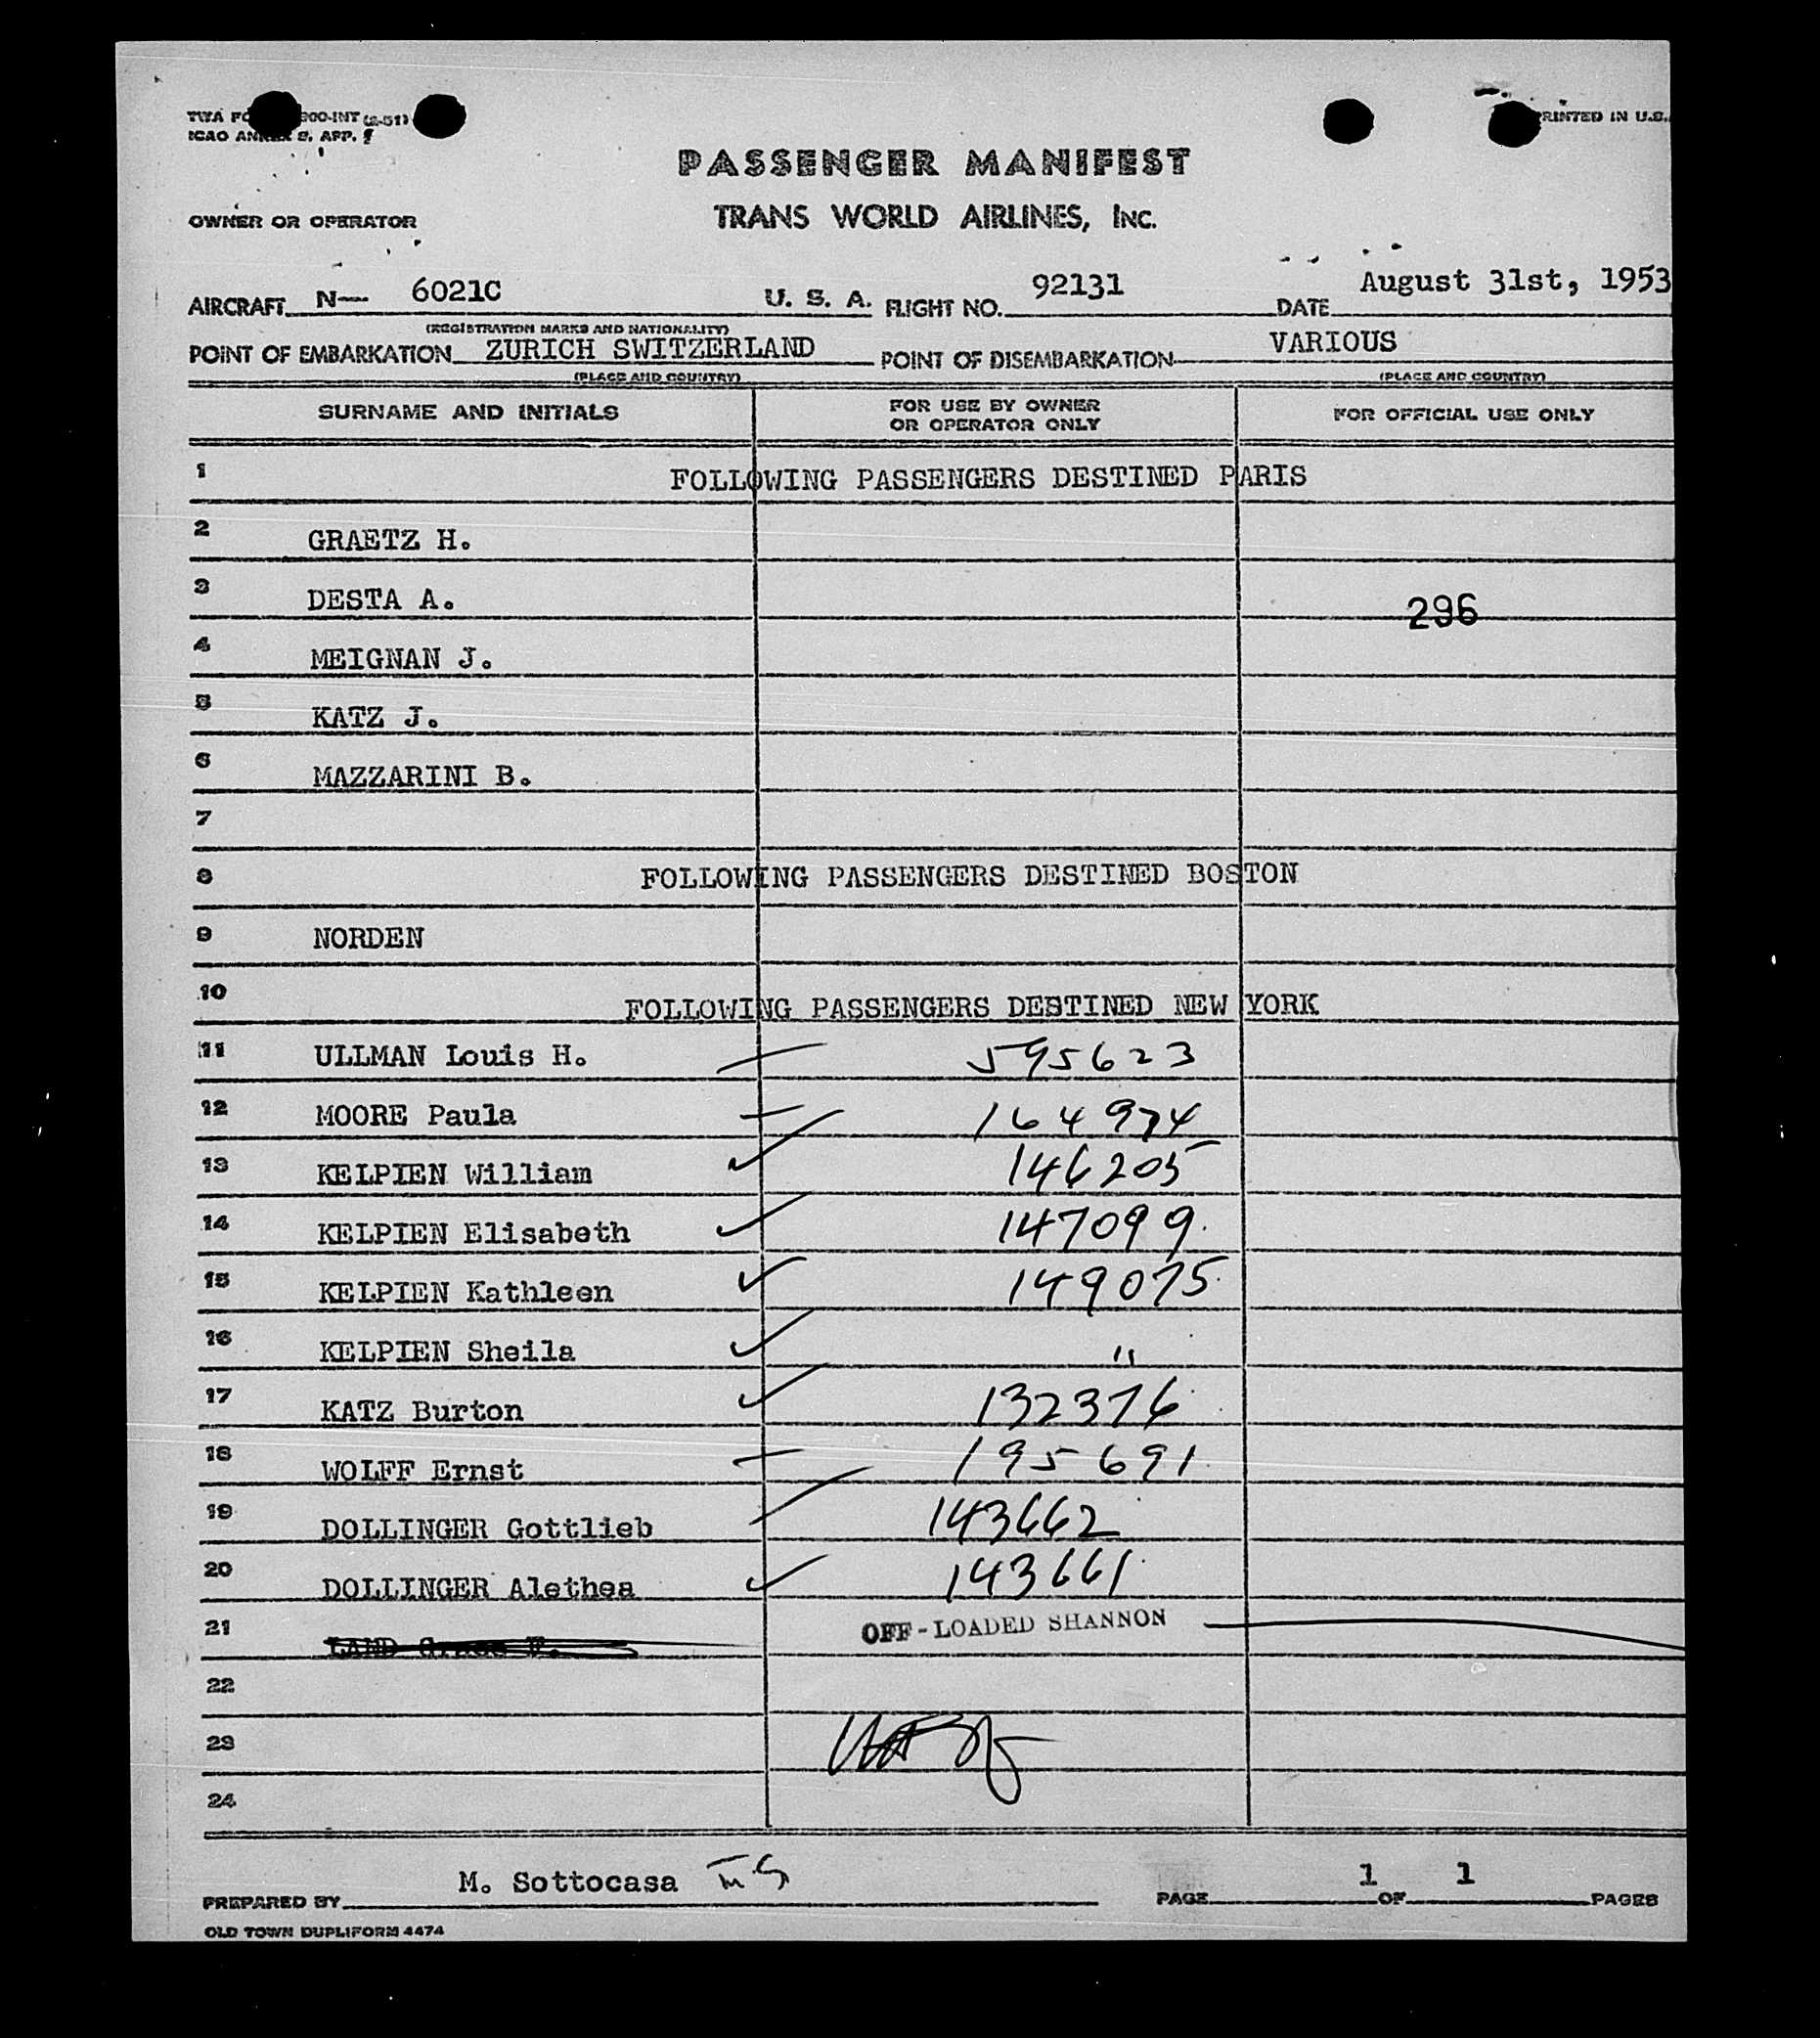 TWA FO 200-INT (2-51)
ICAO ANNEX 9. APP.
PRINTED IN U.S.
PASSENGER MANIFEST
OWNER OR OPERATOR TRANS WORLD AIRLINES, INC.
AIRCRAFT N— 6021C U. S. A. FLIGHT NO. 92131 DATE August 31st, 1953
(REGISTRATION MARKS AND NATIONALITY)
POINT OF EMBARKATION ZURICH SWITZERLAND POINT OF DISEMBARKATION VARIOUS
(PLACE AND COUNTRY) (PLACE AND COUNTRY)
SURNAME AND INITIALS FOR USE BY OWNER OR OPERATOR ONLY FOR OFFICIAL USE ONLY
1 FOLLOWING PASSENGERS DESTINED PARIS
2 GRAETZ H.
3 DESTA A. 296
4 MEIGNAN J.
5 KATZ J.
6 MAZZARINI B.
7
8 FOLLOWING PASSENGERS DESTINED BOSTON
9 NORDEN
10 FOLLOWING PASSENGERS DESTINED NEW YORK
11 ULLMAN Louis H. 595623
12 MOORE Paula 164974
13 KELPIEN William 146205
14 KELPIEN Elisabeth 147099
15 KELPIEN Kathleen 149075
16 KELPIEN Sheila "
17 KATZ Burton 132376
18 WOLFF Ernst 195691
19 DOLLINGER Gottlieb 143662
20 DOLLINGER Alethea 143661
21 LAND Grace OFF-LOADED SHANNON
22
23
24
PREPARED BY M. Sottocasa MS PAGE 1 OF 1 PAGES
OLD TOWN DUPLIFORM 4474